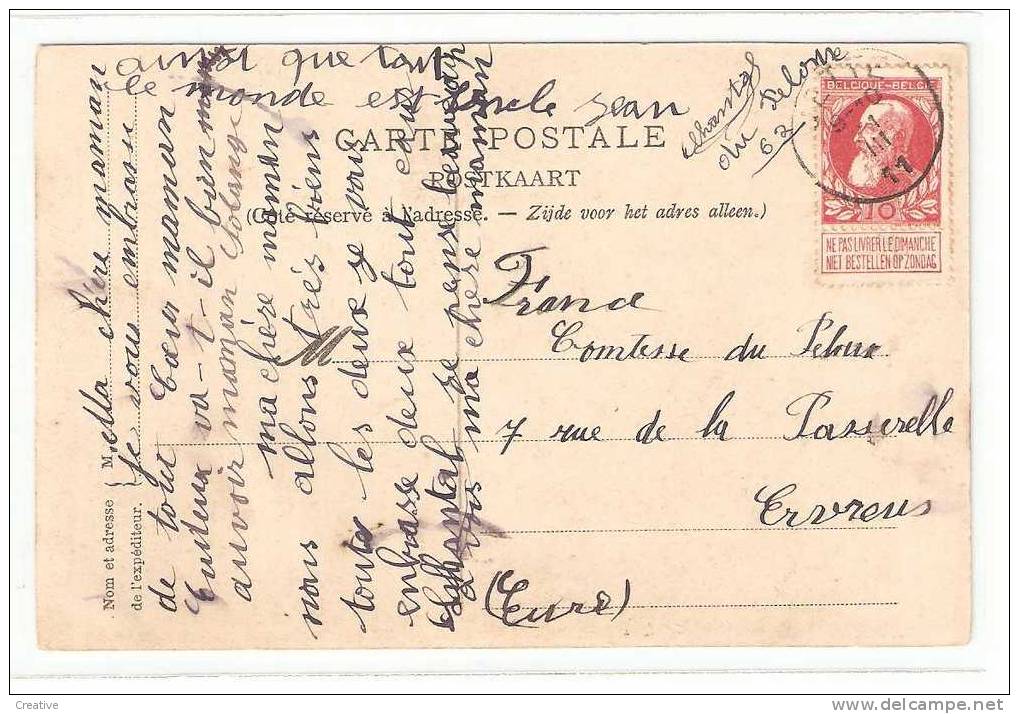 ainsi que tout
le monde est
Oncle Jean
Chantal
du Peloux
62
BELGIQUE-BELGIË
10
NE PAS LIVRER LE DIMANCHE
NIET BESTELLEN OP ZONDAG
11
CARTE POSTALE
POSTKAART
(Côté réservé à l'adresse. — Zijde voor het adres alleen.)
France
M
Comtesse du Peloux
7 rue de la Passerelle
Ervreus
(Eure)
Nom et adresse
de l'expéditeur.
M
ella chère maman
je vous embrasse
de tout cœur maman
va-t-il bien
auvoir maman Solange
ma chère maman
nous allons très biens
toutes les deux je vous
enbrasse deux tout cœur
Chantal je pense beaucoup
a vous ma chère maman
Creative
www.delcampe.net